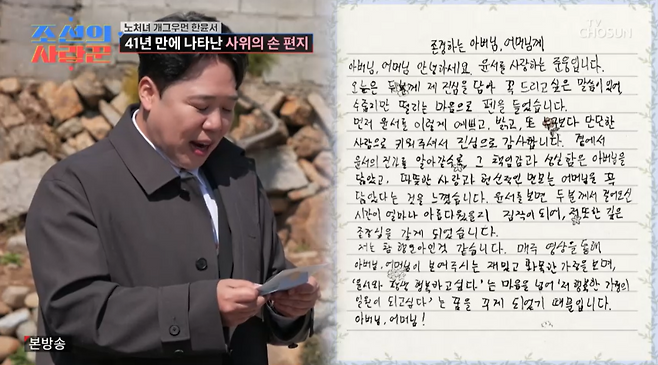 조선의
사랑꾼
노처녀 개그우먼 한윤서
41년 만에 나타난 사위의 손 편지
TV CHOSUN
본방송
존경하는 아버님, 어머님께
아버님, 어머님 안녕하세요. 윤서를 사랑하는 준웅입니다.
오늘은 두 분께 제 진심을 담아 꼭 드리고 싶은 말씀이 있어
수줍지만 떨리는 마음으로 펜을 들었습니다.
먼저 윤서를 이렇게 예쁘고, 밝고, 또 누구보다 단단한
사람으로 키워주셔서 진심으로 감사합니다. 곁에서
윤서의 진가를 알아갈수록, 그 책임감과 성실함은 아버님을
닮았고, 따뜻한 사랑과 헌신적인 면모는 어머님을 꼭
닮았다는 것을 느꼈습니다. 윤서를 보면 두 분께서 걸어오신
시간이 얼마나 아름다웠을지 짐작이 되어, 저 또한 깊은
존경심을 갖게 되었습니다.
저는 참 행운아인것 같습니다. 매주 영상을 통해
아버님, 어머님이 보여주시는 재밌고 화목한 가정을 보며,
'윤서와 평생 행복하고싶다'는 마음을 넘어 '저 행복한 가정의
일원이 되고싶다'는 꿈을 꾸게 되었기 때문입니다.
아버님, 어머님!